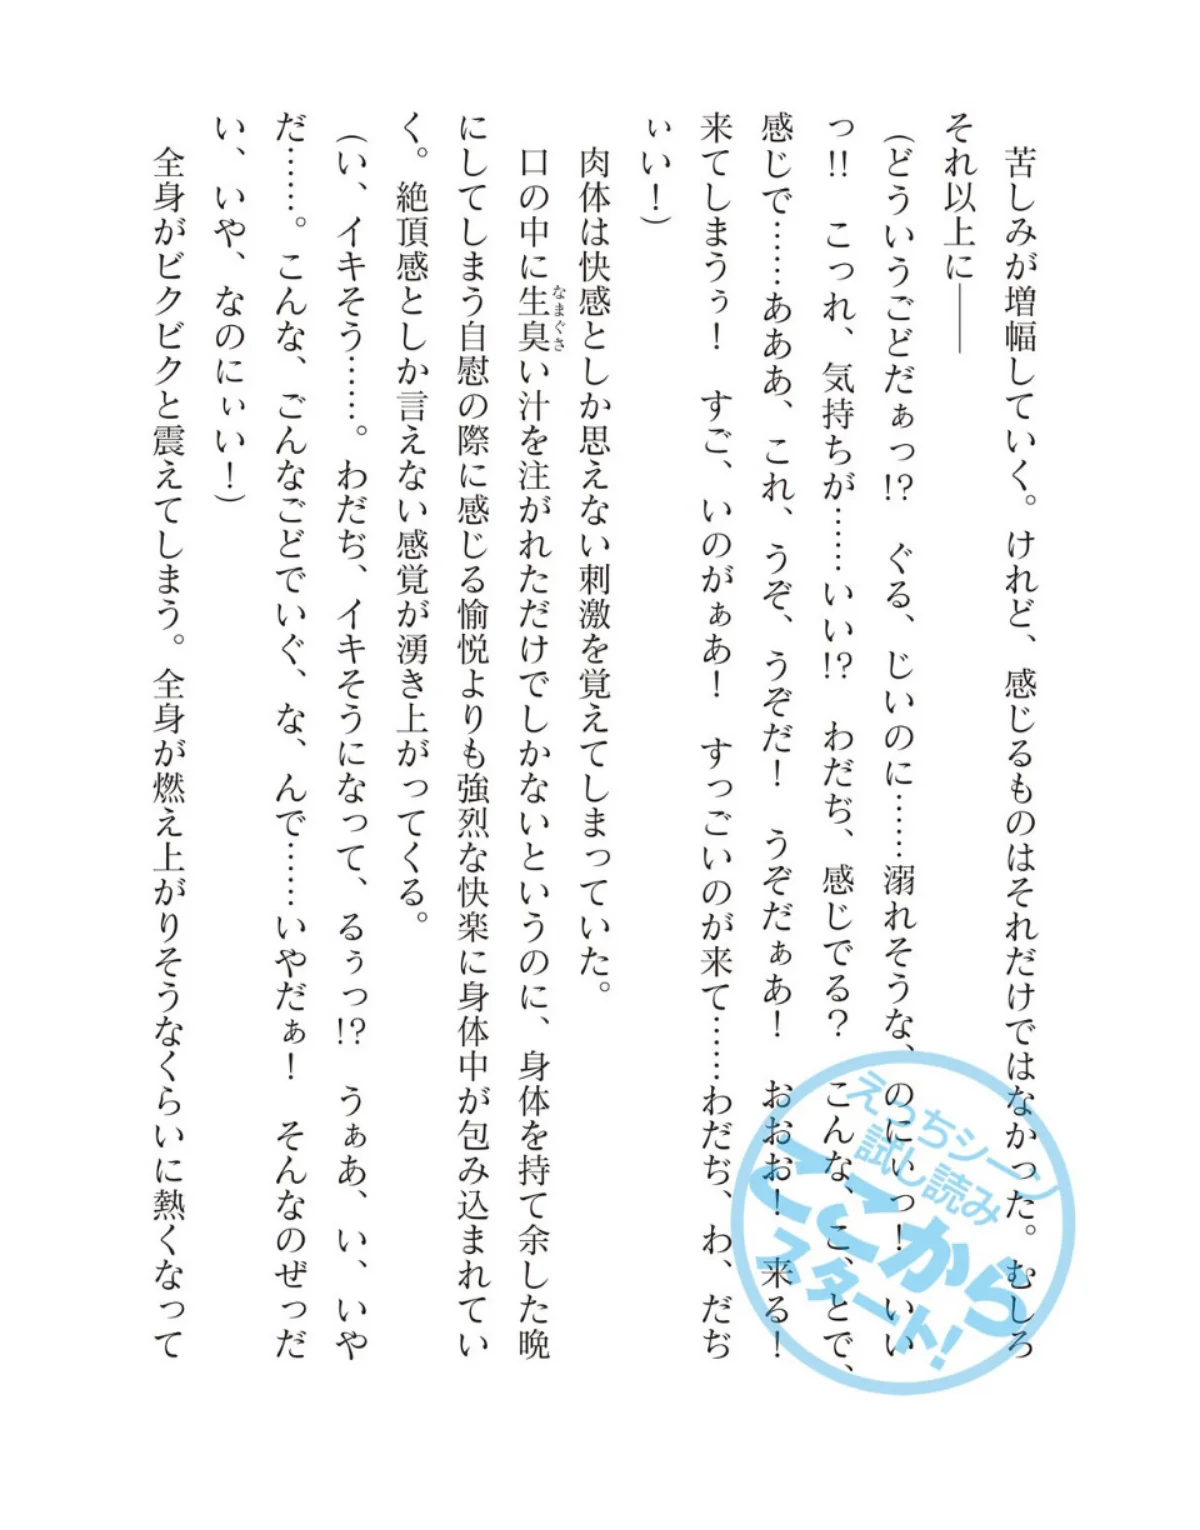 苦しみが増幅していく。けれど、感じるものはそれだけではなかった。むしろ
それ以上に――
(どういうごどだぁっ!?　ぐる、じいのに……溺れそうな、のにいっ！　いい
っ!!　こっれ、気持ちが……いい!?　わだぢ、感じでる？　こんな、こ、とで、
感じで……あああ、これ、うぞ、うぞだ！　うぞだぁあ！　おおお！　来る！
来てしまうぅ！　すご、いのがぁあ！　すっごいのが来て……わだぢ、わ、だぢ
ぃい！)
肉体は快感としか思えない刺激を覚えてしまっていた。
口の中に生臭い汁を注がれただけでしかないというのに、身体を持て余した晩
なまぐさ
にしてしまう自慰の際に感じる愉悦よりも強烈な快楽に身体中が包み込まれてい
く。絶頂感としか言えない感覚が湧き上がってくる。
(い、イキそう……。わだぢ、イキそうになって、るぅっ!?　うぁあ、い、いや
だ……。こんな、ごんなごどでいぐ、な、んで……いやだぁ！　そんなのぜっだ
い、いや、なのにぃい！)
全身がビクビクと震えてしまう。全身が燃え上がりそうなくらいに熱くなって
えっちシーン
試し読み
ここから
スタート！